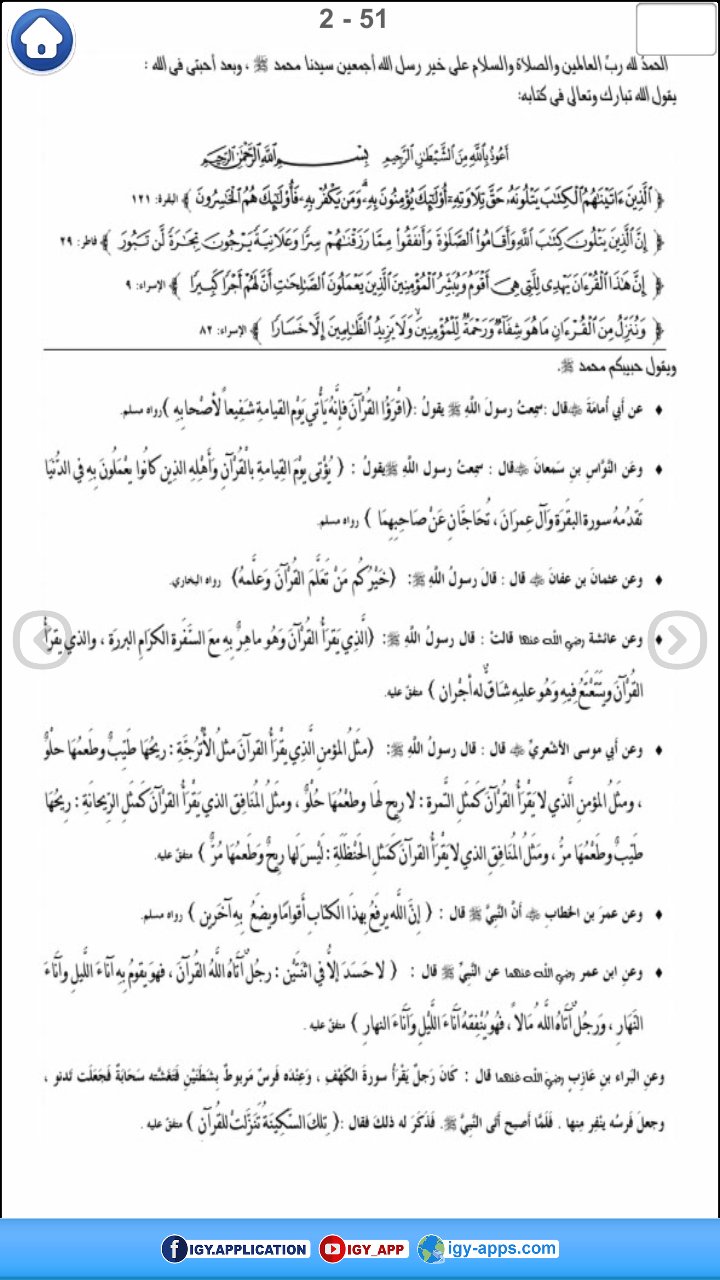 2 - 51
الحمدُ لله ربِّ العالمين والصلاة والسلام على خير رسل الله أجمعين سيدنا محمد ﷺ ، وبعد أحبتى فى الله :
يقول الله تبارك وتعالى فى كتابه:
أَعُوذُ بِاللَّهِ مِنَ الشَّيْطَانِ الرَّجِيمِ بِسْمِ اللَّهِ الرَّحْمَٰنِ الرَّحِيمِ
﴿ الَّذِينَ ءَاتَيْنَٰهُمُ الْكِتَٰبَ يَتْلُونَهُۥ حَقَّ تِلَاوَتِهِۦٓ أُوْلَٰٓئِكَ يُؤْمِنُونَ بِهِۦ ۗ وَمَن يَكْفُرْ بِهِۦ فَأُوْلَٰٓئِكَ هُمُ الْخَٰسِرُونَ ﴾ البقرة: ١٢١
﴿ إِنَّ الَّذِينَ يَتْلُونَ كِتَٰبَ اللَّهِ وَأَقَامُوا الصَّلَوٰةَ وَأَنفَقُوا مِمَّا رَزَقْنَٰهُمْ سِرًّا وَعَلَانِيَةً يَرْجُونَ تِجَٰرَةً لَّن تَبُورَ ﴾ فاطر: ٢٩
﴿ إِنَّ هَٰذَا الْقُرْءَانَ يَهْدِى لِلَّتِى هِىَ أَقْوَمُ وَيُبَشِّرُ الْمُؤْمِنِينَ الَّذِينَ يَعْمَلُونَ الصَّٰلِحَٰتِ أَنَّ لَهُمْ أَجْرًا كَبِيرًا ﴾ الإسراء: ٩
﴿ وَنُنَزِّلُ مِنَ الْقُرْءَانِ مَا هُوَ شِفَآءٌ وَرَحْمَةٌ لِّلْمُؤْمِنِينَ ۙ وَلَا يَزِيدُ الظَّٰلِمِينَ إِلَّا خَسَارًا ﴾ الإسراء: ٨٢
ويقول حبيبكم محمد ﷺ.
♦ عن أبي أُمامَةَ ؓ قال :سمِعتُ رسولَ اللَّهِ ﷺ يقولُ :(اقْرَؤُا القُرْآنَ فإِنَّهُ يَأْتي يَوْم القيامةِ شَفِيعاً لأصْحابِهِ )رواه مسلم.
♦ وعَن النَّوَّاسِ بنِ سَمعانَ ؓ قال : سمِعتُ رسول اللَّهِ ﷺ يقولُ : ( يُؤْتى يوْمَ القِيامةِ بالْقُرْآنِ وَأَهْلِهِ الذِين كانُوا يعْمَلُونَ بِهِ في الدُّنيَا
تَقدُمهُ سورة البقَرَةِ وَآل عِمرَانَ ، تحَاجَّانِ عَنْ صاحِبِهِمَا ) رواه مسلم.
♦ وعن عثمانَ بن عفانَ ؓ قال : قالَ رسولُ اللَّهِ ﷺ: (خَيركُم مَنْ تَعَلَّمَ القُرْآنَ وَعلَّمهُ) رواه البخاري.
♦ وعن عائشة رضي الله عنها قالتْ : قال رسولُ اللَّهِ ﷺ: (الَّذِي يَقرَأُ القُرْآنَ وَهُو ماهِرٌ بِهِ معَ السَّفَرةِ الكرَامِ البررَةِ ، والذي يقرَأُ
القُرْآنَ ويتَتَعْتَعُ فِيهِ وَهُو عليهِ شَاقٌّ له أجْران ) متفق عليه.
♦ وعن أبي موسى الأشْعريِّ ؓ قال : قال رسولُ اللَّهِ ﷺ: (مثَلُ المؤمنِ الَّذِي يقْرَأُ القرآنَ مثلُ الأُتْرُجَّةِ : ريحُهَا طَيِّبٌ وطَعمُهَا حلْوٌ
، ومثَلُ المؤمنِ الَّذي لا يَقْرَأُ القُرْآنَ كمثَلِ التَّمرةِ : لا رِيح لهَا وطعْمُهَا حُلْوٌ ، ومثَلُ المُنَافِق الذي يَقْرَأُ القرْآنَ كَمثَلِ الرِّيحانَةِ : رِيحُهَا
طَيِّبٌ وطَعْمُهَا مرٌّ ، ومَثَلُ المُنَافِقِ الذي لا يَقْرَأُ القرْآنَ كَمَثلِ الحَنْظَلَةِ : لَيْسَ لَها رِيحٌ وَطَعمُهَا مُرٌّ ) متفق عليه.
♦ وعن عمرَ بن الخطابِ ؓ أنَّ النَّبِيَّ ﷺ قال : ( إِنَّ اللَّه يرفَعُ بِهذَا الكتَاب أقوامًا ويضَعُ بِهِ آخَرين ) رواه مسلم.
♦ وعنِ ابن عمر رضي الله عنهما عن النَّبِيِّ ﷺ قال : ( لا حَسَدَ إلاَّ في اثنَتَيْن : رجُلٌ آتَاهُ اللَّهُ القُرْآنَ ، فهوَ يقومُ بِهِ آناءَ اللَّيلِ وآنَاءَ
النَّهَارِ ، ورجُلٌ آتَاهُ اللَّه مَالاً ، فهُو يُنْفِقهُ آنَاءَ اللَّيْلِ وَآنَاءَ النهارِ ) متفقٌ عليه .
وعنِ البَراء بنِ عَازِبٍ رضي الله عنهما قال : كَانَ رَجلٌ يَقْرَأُ سورةَ الكَهْفِ ، وَعِنْدَه فَرسٌ مَربوطٌ بِشَطَنَيْنِ فَتَغَشَّتْه سَحَابَةٌ فَجَعَلَت تَدنو ،
وجعلَ فَرسُه ينْفِر مِنها . فَلَمَّا أَصبح أَتَى النَّبِيَّ ﷺ. فَذَكَرَ له ذلكَ فقالَ :( تِلكَ السَّكِينَةُ تَنَزَّلَتْ للقُرآنِ ) متفقٌ عليه .
IGY.APPLICATION IGY_APP igy-apps.com